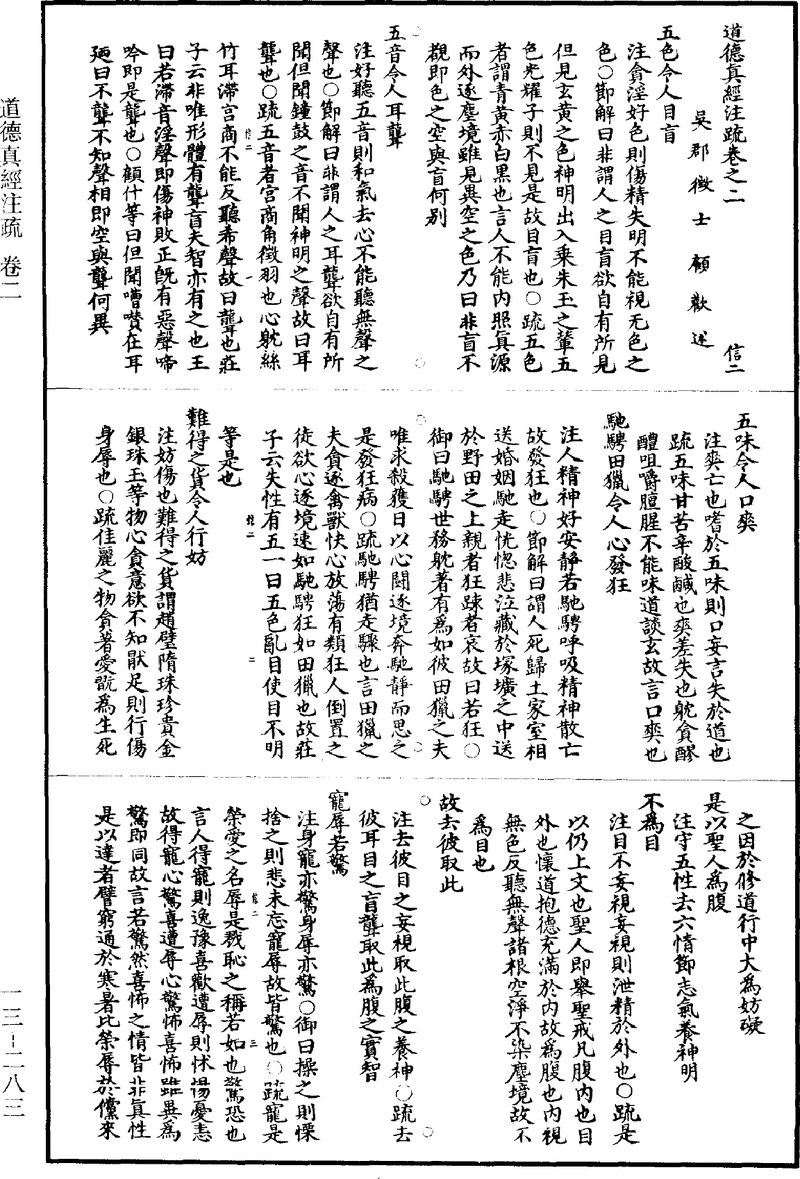 道德真經注疏卷之二
信二
吳郡徵士顧歡述
五色令人目盲
注貪淫好色則傷精失明不能視无色之
色○節解曰非謂人之目盲欲自有所見
但見玄黃之色神明出入乗朱玉之輦五
色光耀子則不見是故目盲也○䟽五色
者謂青黃赤白黒也言人不能内照真源
而外逐塵境雖見異空之色乃曰非盲不
覩即色之空與盲何別
五音令人耳聾
注好聽五音則和氣去心不能聽無聲之
聲也○節解曰非謂人之耳聾欲自有所
聞但聞鐘鼓之音不聞神明之聲故曰耳
聾也○䟽五音者宮商角徵羽也心躭絲
竹耳滯宮商不能反聽希聲故曰聾也莊
子云非唯形體有聾盲夫智亦有之也王
曰若滯音淫聲即傷神敗正旣有惡聲啼
吟即是聾也○顧什等曰但聞嘈囋在耳
廼曰不聾不知聲相即空與聾何異
五味令人口爽
注爽亡也嗜於五味則口妄言失於道也
䟽五味甘苦辛酸鹹也爽差失也躭貪醪
醴咀嚼膻腥不能味道談玄故言口爽也
馳騁田獵令人心發狂
注人精神好安靜若馳騁呼吸精神散亡
故發狂也○節解曰謂人死歸土家室相
送婚姻馳走恍惚悲泣藏於塚壙之中送
於野田之上親者狂踈者哀故曰若狂○
御曰馳騁世務躭著有爲如彼田獵之夫
唯求殺獲日以心鬭逐境奔馳靜而思之
是發狂病○䟽馳騁猶走驟也言田獵之
夫貪逐禽獸快心放蕩有類狂人倒置之
徒欲心逐境速如馳騁狂如田獵也故莊
子云失性有五一曰五色亂目使目不明
等是也
難得之貨令人行妨
注妨傷也難得之貨謂趙璧隋珠珍貴金
銀珠玉等物心貪意欲不知猒足則行傷
身辱也○䟽佳麗之物貪著愛翫爲生死
之因於修道行中大爲妨礙
是以聖人爲腹
注守五性去六情節志氣養神明
不爲目
注目不妄視妄視則泄精於外也○䟽是
以仍上文也聖人即舉聖戒凡腹内也目
外也懷道抱德充滿於内故爲腹也内視
無色反聽無聲諸根空淨不染塵境故不
爲目也
故去彼取此
注去彼目之妄視取此腹之養神○䟽去
彼耳目之盲聾取此爲腹之實智
寵辱若驚
注身寵亦驚身辱亦驚○御曰操之則慄
捨之則悲未忘寵辱故皆驚也○䟽寵是
榮愛之名辱是戮恥之稱若如也驚恐也
言人得寵則逸豫喜歡遭辱則怵惕憂恚
故得寵心驚喜遭辱心驚怖喜怖雖異爲
驚即同故言若驚然喜怖之情皆非真性
是以達者譬窮通於寒暑比榮辱於儻來
道德真經注疏 卷二
一三－二八三